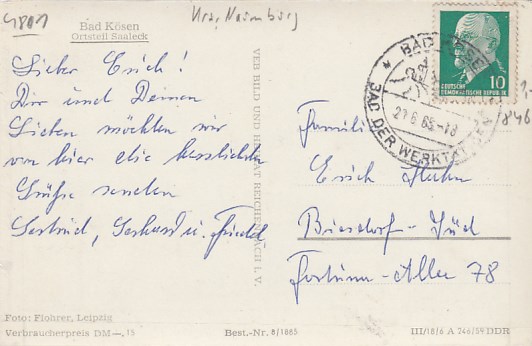 4801
Krs. Naumburg
Bad Kösen
Ortsteil Saaleck
Lieber Erich!
Dir und Deinen
Lieben möchten wir
von hier die herzlichsten
Grüße senden
Gertrud, Gerhard u. Friedel
VEB BILD UND HEIMAT REICHENBACH I. V.
DEUTSCHE
DEMOKRATISCHE REPUBLIK
10
BAD KÖSEN
BAD DER WERKTÄTIGEN
Familie
Erich Huhn
Biesdorf-Süd
Fortuna-Allee 78
Foto: Flohrer, Leipzig
Verbraucherpreis DM —,15
Best.-Nr. 8/1885
III/18/6 A 746/59 DDR